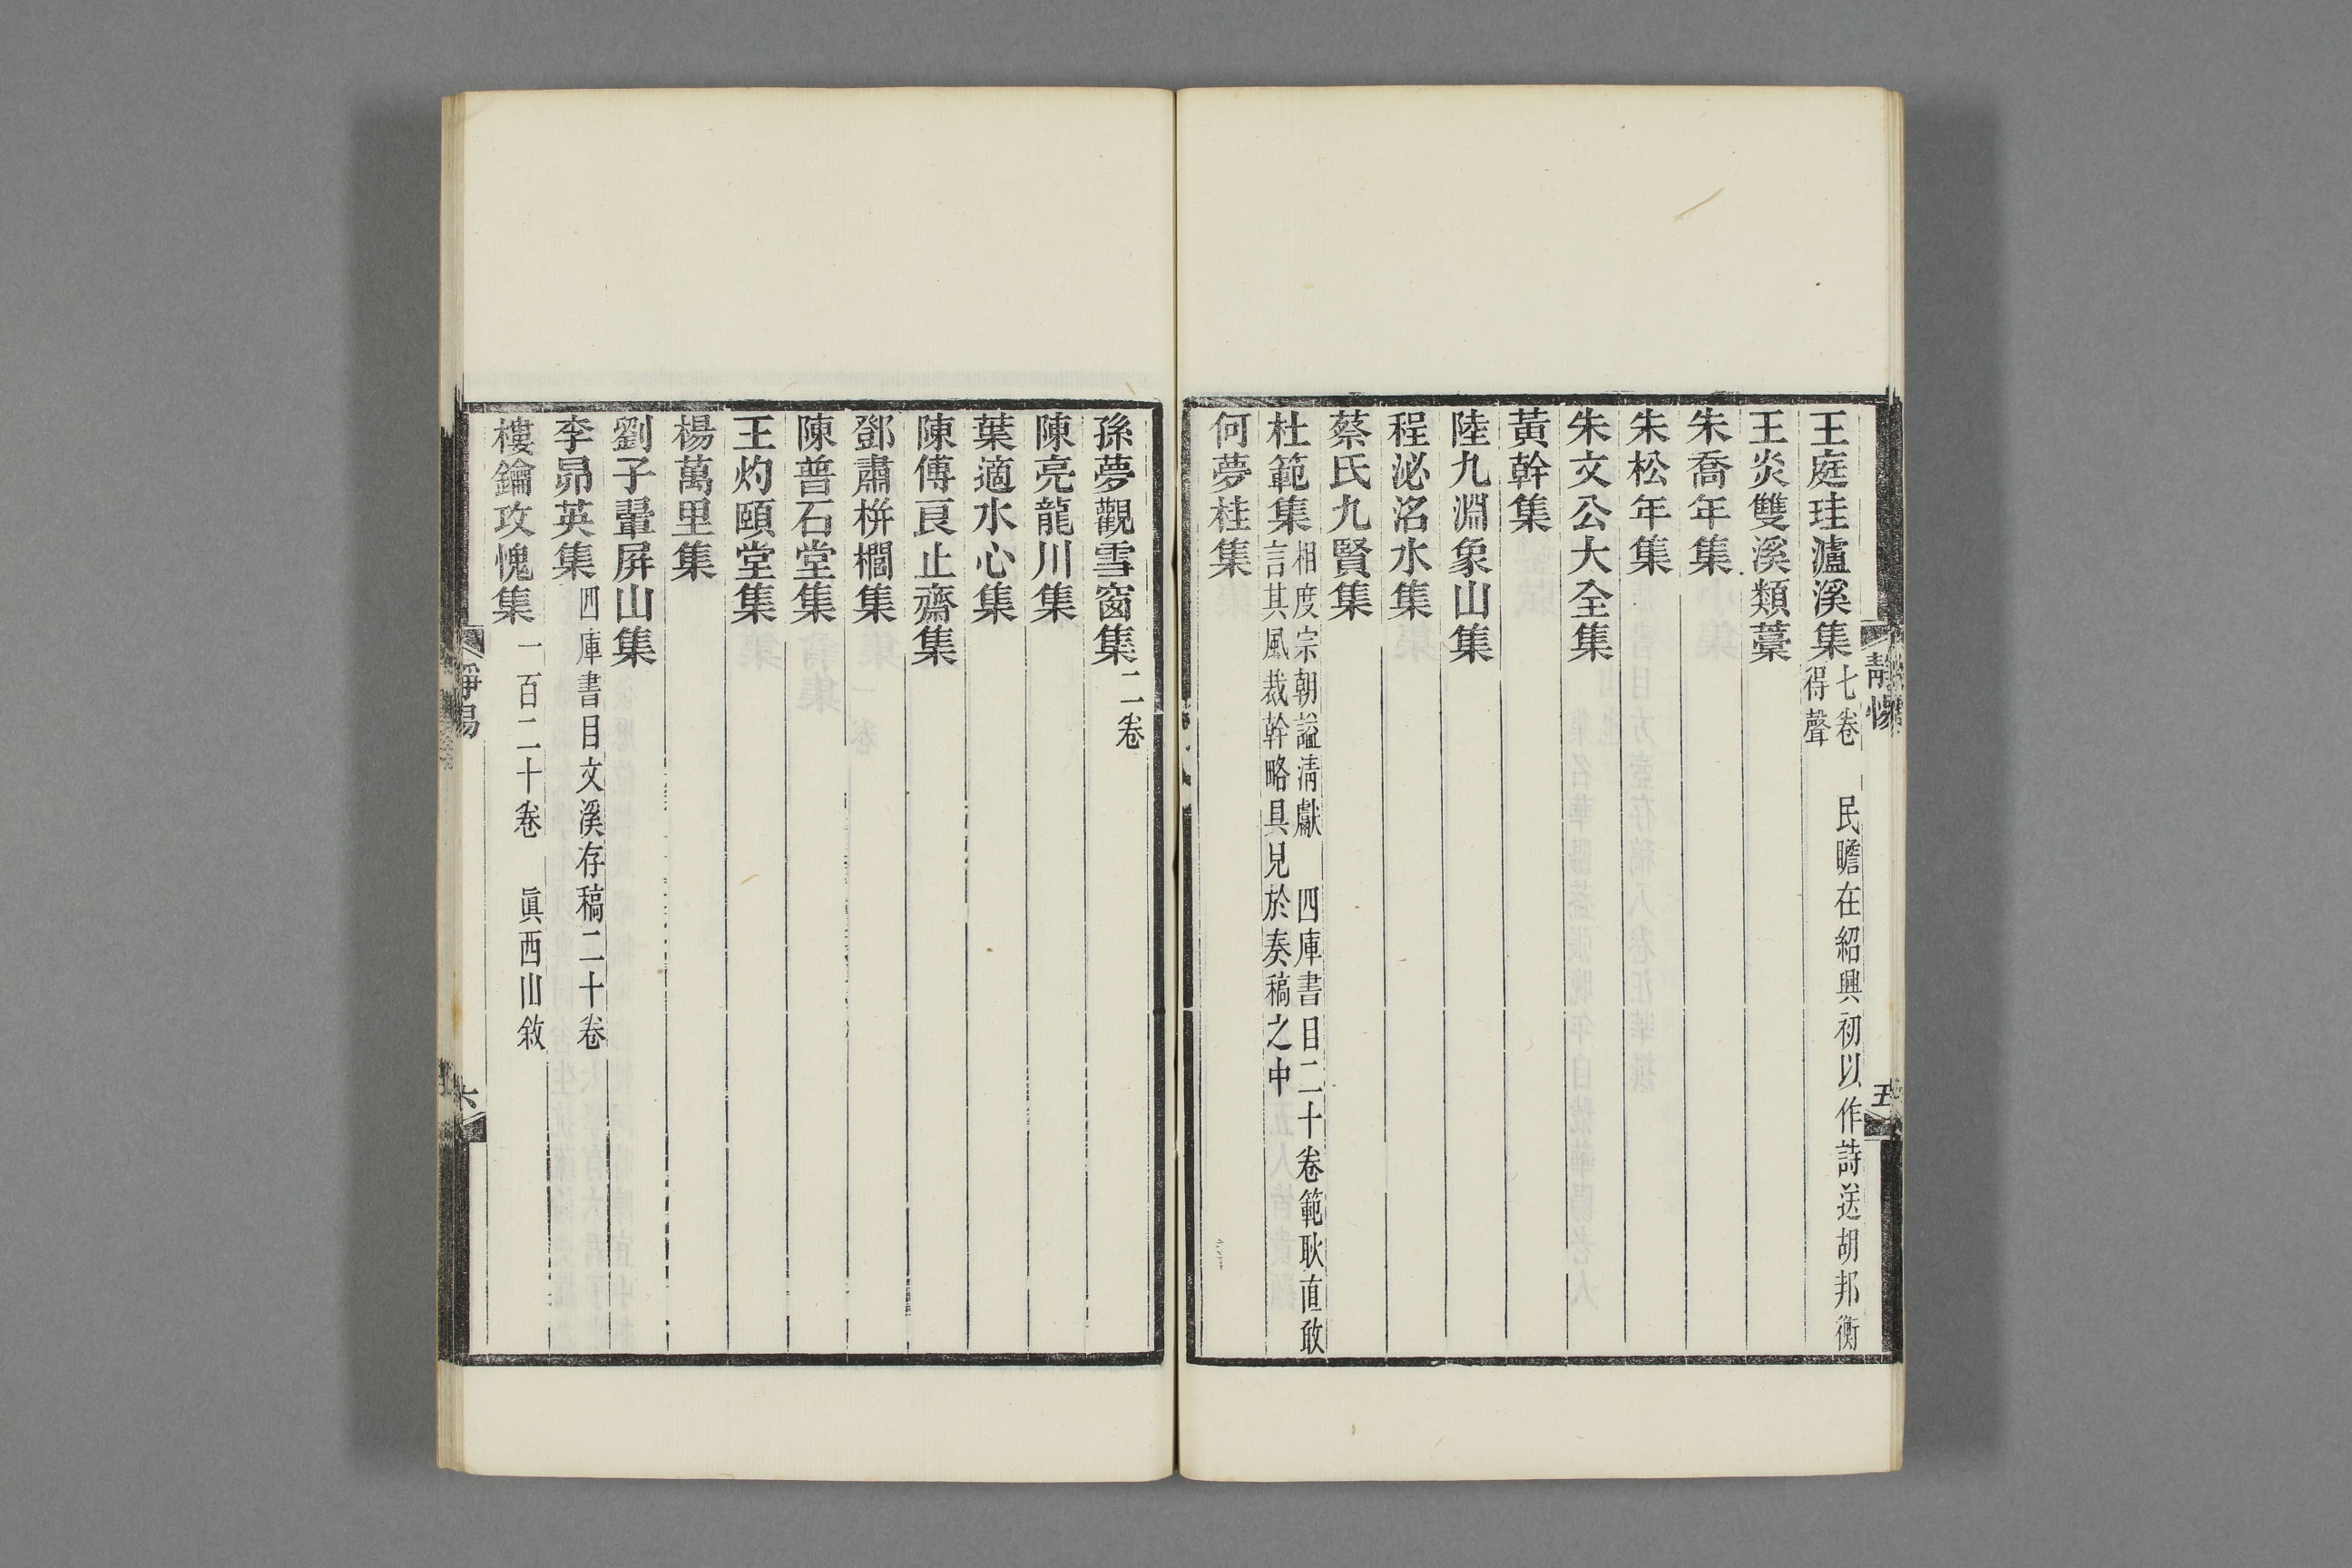 王庭珪瀘溪集七卷 民瞻在紹興初以作詩送胡邦衡
得聲
王炎雙溪類藁
朱喬年集
朱松年集
朱文公大全集
黃幹集
陸九淵象山集
程泌洺水集
蔡氏九賢集
杜範集相度宗朝謚淸獻 四庫書目二十卷範耿直敢
言其風裁幹略具見於奏稿之中
何夢桂集
五
孫夢觀雪窗集二卷
陳亮龍川集
葉適水心集
陳傅良止齋集
鄧肅栟櫚集
陳普石堂集
王灼頤堂集
楊萬里集
劉子翬屏山集
李昴英集四庫書目文溪存稿二十卷
樓鑰攻愧集一百二十卷 眞西山敘
六